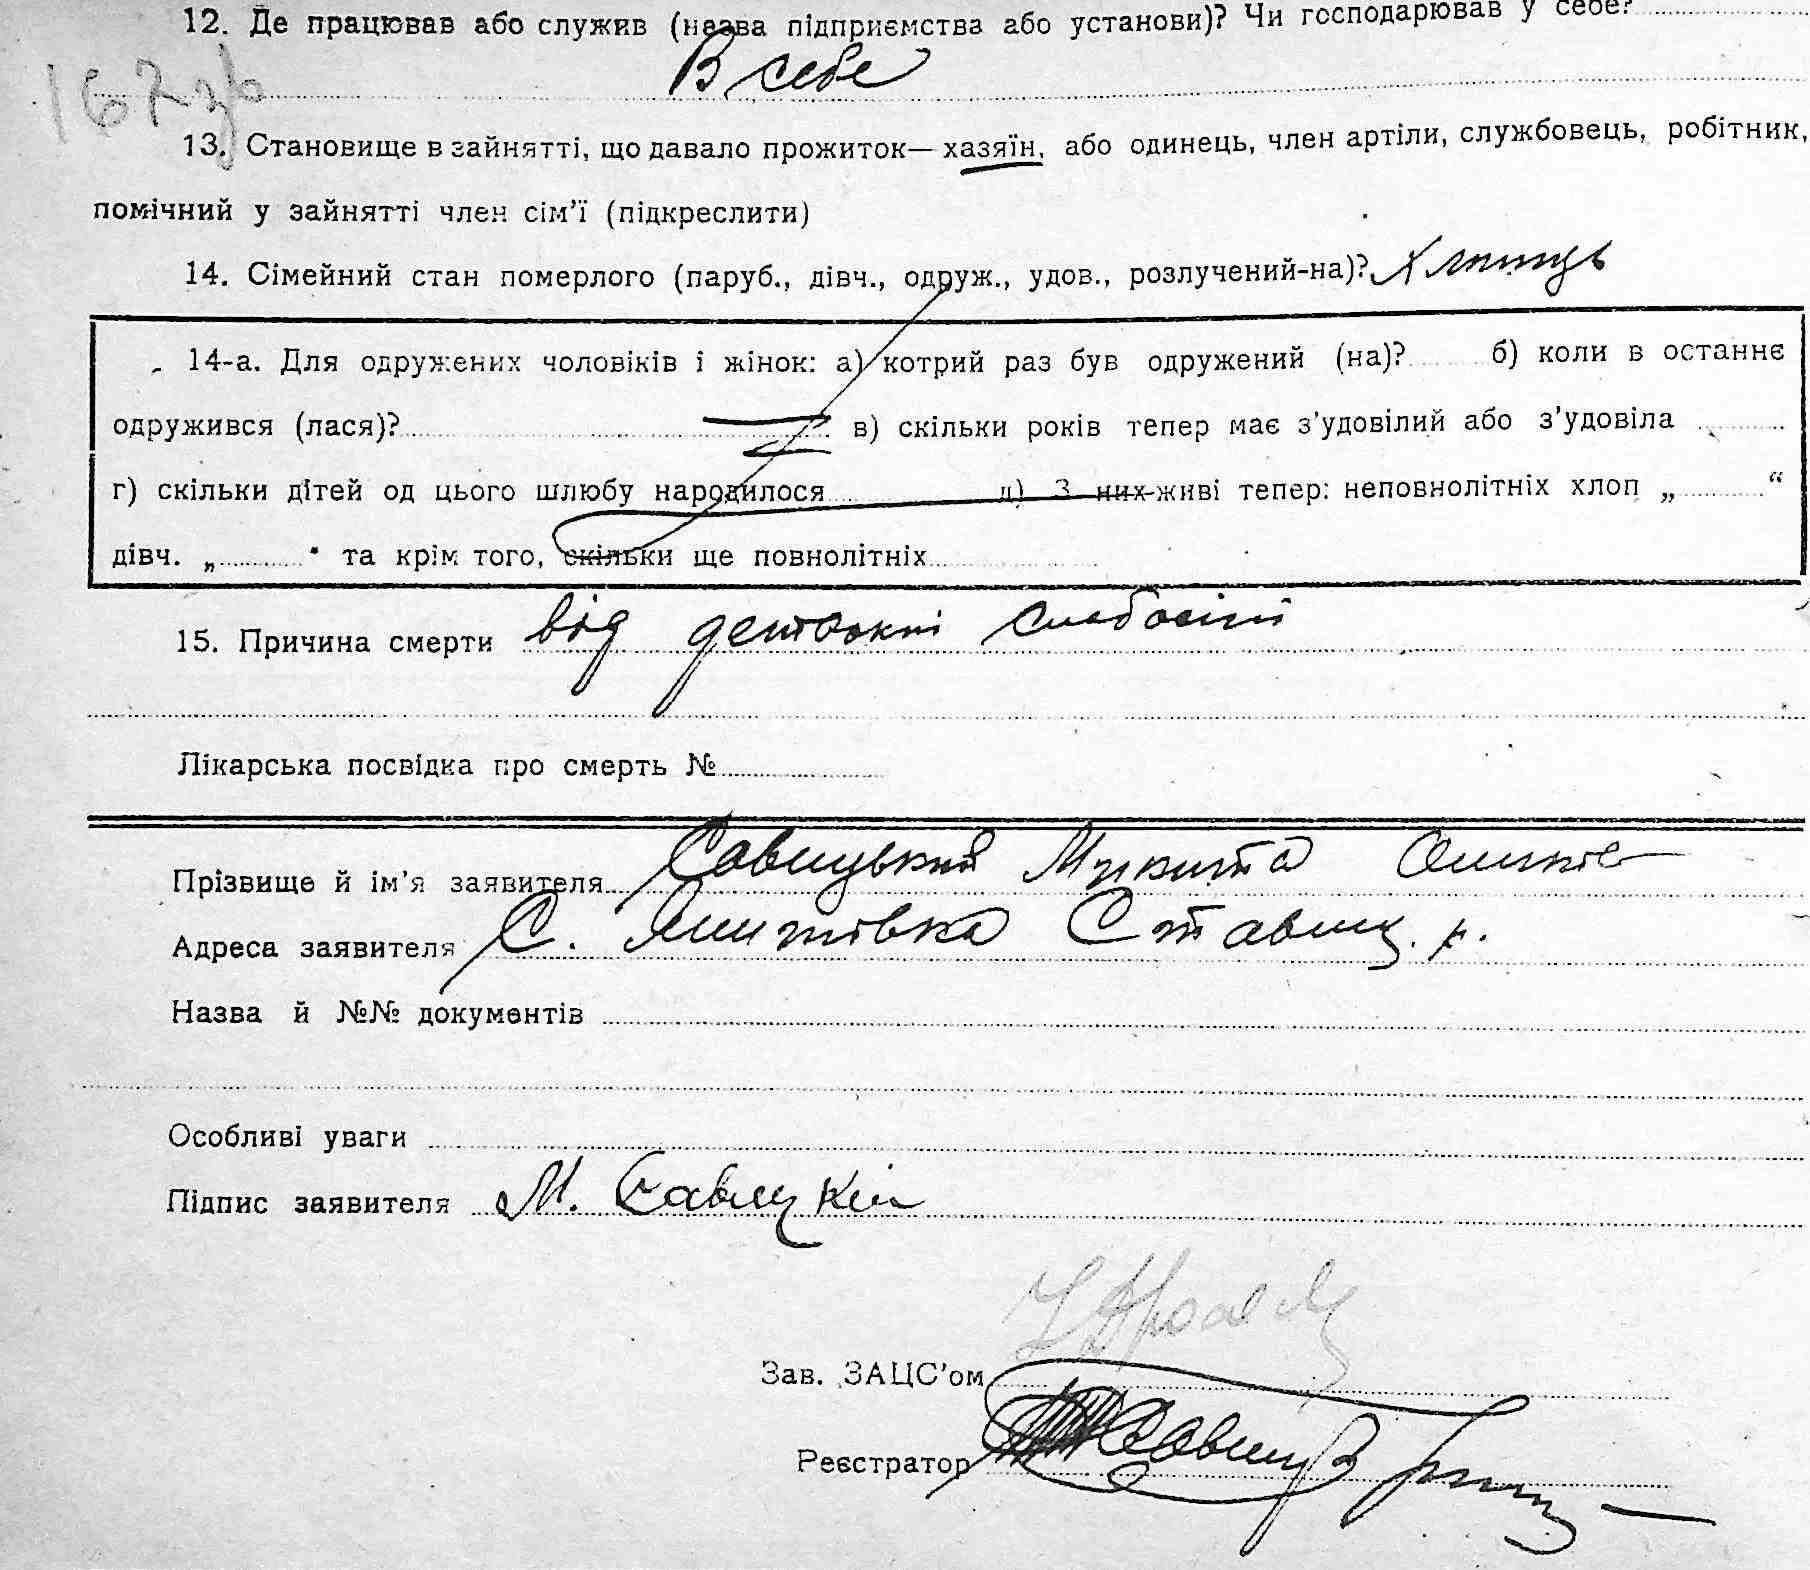 12. Де працював або служив (назва підприємства або установи)? Чи господарював у себе?
В себе
167 зв
13. Становище в зайнятті, що давало прожиток— хазяїн, або одинець, член артіли, службовець, робітник,
помічний у зайнятті член сім'ї (підкреслити)
14. Сімейний стан померлого (паруб., дівч., одруж., удов., розлучений-на)? Хлопець
14-а. Для одружених чоловіків і жінок: а) котрий раз був одружений (на)? б) коли в останнє
одружився (лася)? в) скільки років тепер має з'удовілий або з'удовіла
г) скільки дітей од цього шлюбу народилося д) З них живі тепер: неповнолітніх хлоп „ “
дівч. „ “ та крім того, скільки ще повнолітніх
15. Причина смерти від детской слабости
Лікарська посвідка про смерть №
Прізвище й ім'я заявителя Савицький Микита
Адреса заявителя С. Ставищ. р.
Назва й №№ документів
Особливі уваги
Підпис заявителя М. Савицкий
Зав. ЗАЦС'ом
Реєстратор